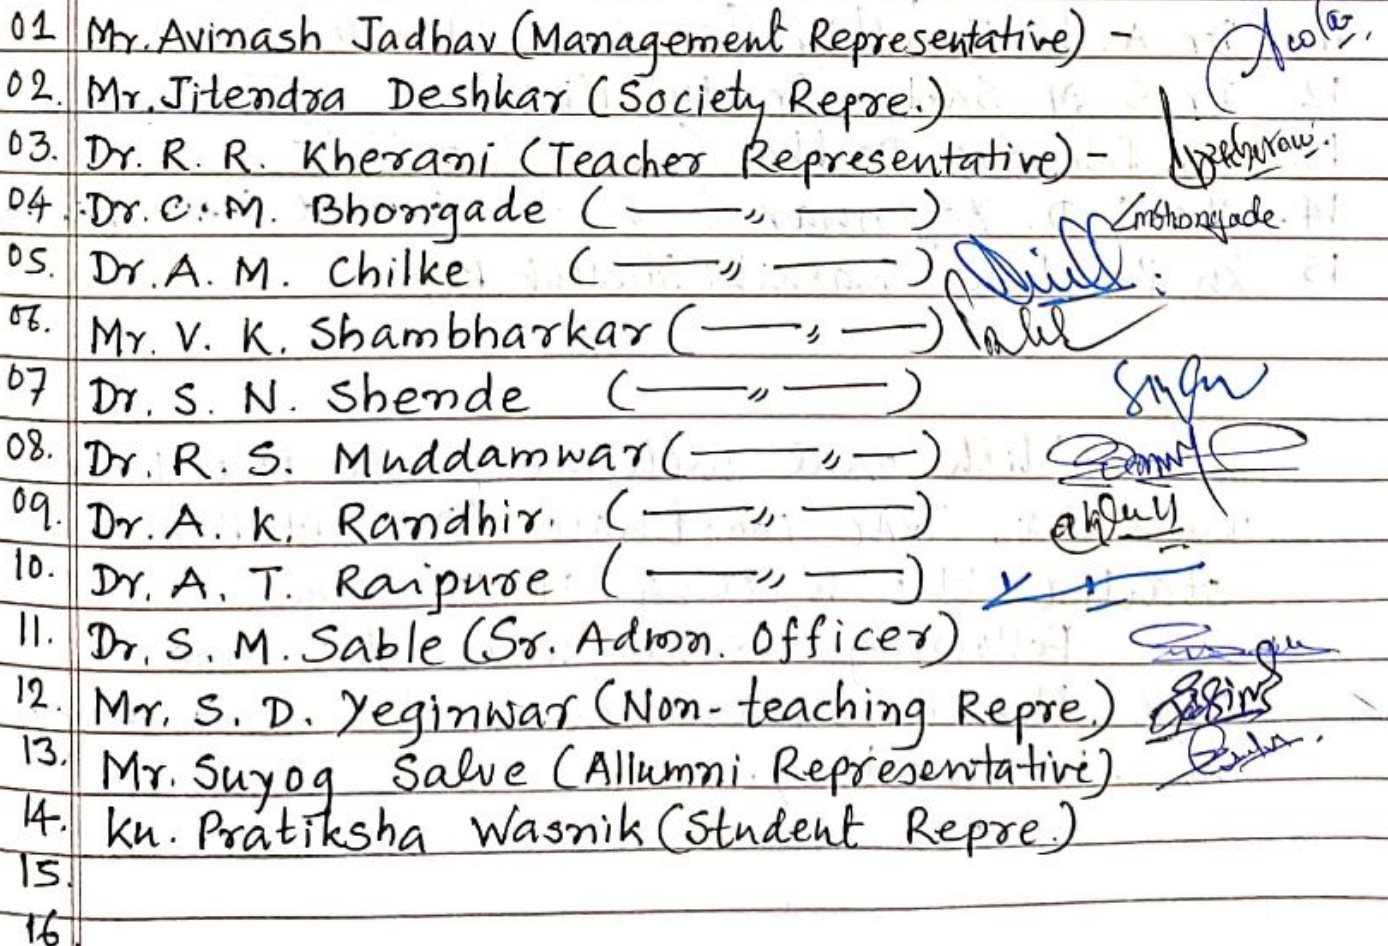 01 Mr. Avinash Jadhav (Management Representative) -
02. Mr. Jitendra Deshkar (Society Repre.)
03. Dr. R. R. Kherani (Teacher Representative) -
04. Dr. C. M. Bhongade ( —— " —— ) CMBhongade
05. Dr. A. M. Chilke. ( —— " —— )
06. Mr. V. K. Shambharkar ( —— " —— )
07 Dr. S. N. Shende ( —— " —— )
08. Dr. R. S. Muddamwar ( —— " —— )
09. Dr. A. K. Randhir. ( —— " —— )
10. Dr. A. T. Raipure ( —— " —— )
11. Dr. S. M. Sable (Sr. Admn. Officer)
12. Mr. S. D. Yeginwar (Non-teaching Repre.)
13. Mr. Suyog Salve (Allumni Representative)
14. Ku. Pratiksha Wasnik (Student Repre.)
15.
16